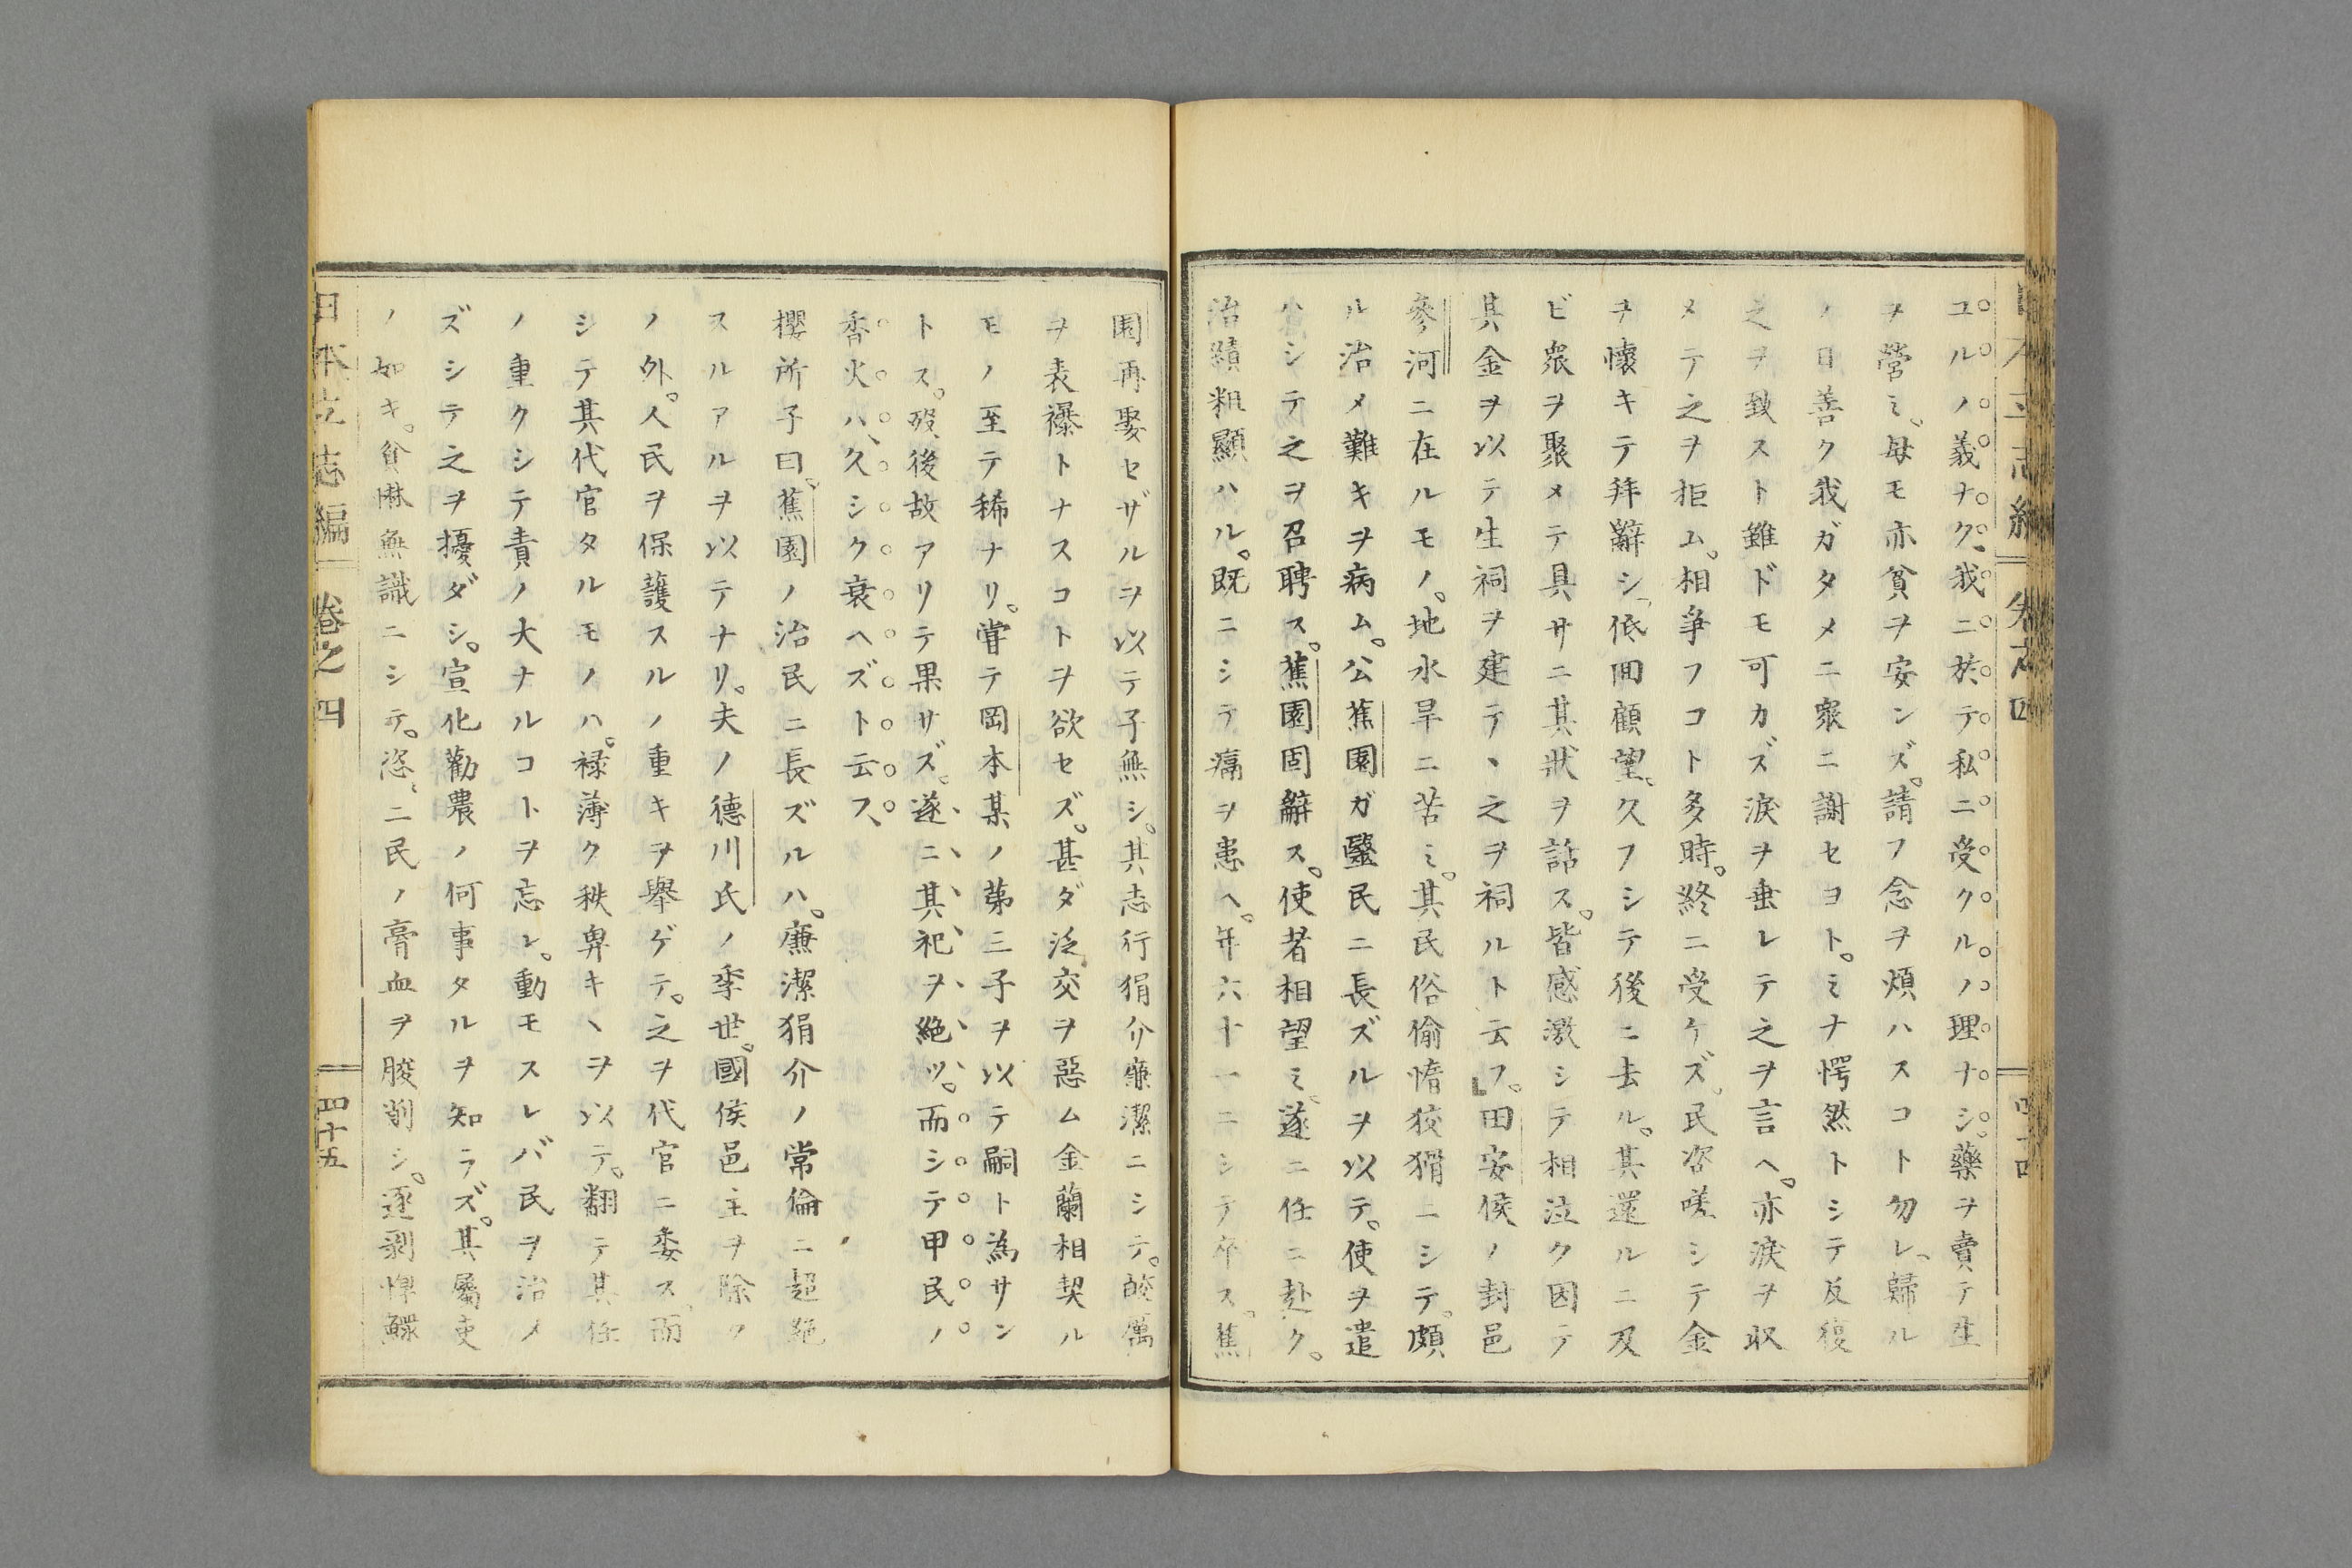 ユルノ義ナク、我ニ於テ私ニ受クルノ理ナシ。藥ヲ賣テ生
ヲ營ミ、母モ亦貧ヲ安ンズ。請フ念ヲ煩ハスコト勿レ、歸ル
ノ日善ク我ガタメニ衆ニ謝セヨト。ミナ愕然トシテ反復
之ヲ致スト雖ドモ可カズ淚ヲ垂レテ之ヲ言ヘ。亦淚ヲ収
メテ之ヲ拒ム。相爭フコト多時。終ニ受ケズ、民咨嗟シテ金
ヲ懷キテ拜辭シ、低回顧望。久フシテ後ニ去ル。其還ルニ及
ビ衆ヲ聚メテ具サニ其狀ヲ話ス。皆感激シテ相泣ク因テ
其金ヲ以テ生祠ヲ建テヽ之ヲ祠ルト云フ。」田安侯ノ封邑
參河ニ在ルモノ。地水旱ニ苦ミ。其民俗偷惰狡猾ニシテ。頗
ル治メ難キヲ病ム。公蕉園ガ毉民ニ長ズルヲ以テ。使ヲ遣
ハシテ之ヲ召聘ス。蕉園固辭ス。使者相望ミ、遂ニ任ニ赴ク。
治績粗顯ハル。既ニシテ痛ヲ患ヘ。年六十一ニシテ卒ス。蕉
園再娶セザルヲ以テ子無シ。其志行狷介廉潔ニシテ。皎厲
ヲ表襮トナスコトヲ欲セズ。甚ダ泛交ヲ惡ム金蘭相契ル
モノ至テ稀ナリ。嘗テ岡本某ノ第三子ヲ以テ嗣ト為サン
トス。歿後故アリテ果サズ。遂ニ其祀ヲ絶ツ。而シテ甲民ノ
香火ハ、久シク衰ヘズト云フ、
櫻所子曰。蕉園ノ治民ニ長ズルハ。廉潔狷介ノ常倫ニ超絶
スルアルヲ以テナリ。夫ノ德川氏ノ季世。國侯邑主ヲ除ク
ノ外。人民ヲ保護スルノ重キヲ擧ゲテ。之ヲ代官ニ委ス。而
シテ其代官タルモノハ。禄薄ク秩卑キヽヲ以テ。翻テ其任
ノ重クシテ責ノ大ナルコトヲ忘レ。動モスレバ民ヲ治メ
ズシテ之ヲ擾ダシ。宣化勸農ノ何事タルヲ知ラズ。其屬吏
ノ如キ。貧惏無識ニシテ。恣ニ民ノ膏血ヲ朘削シ。逐剥悍鰥
日本立志編 卷之四 四十五